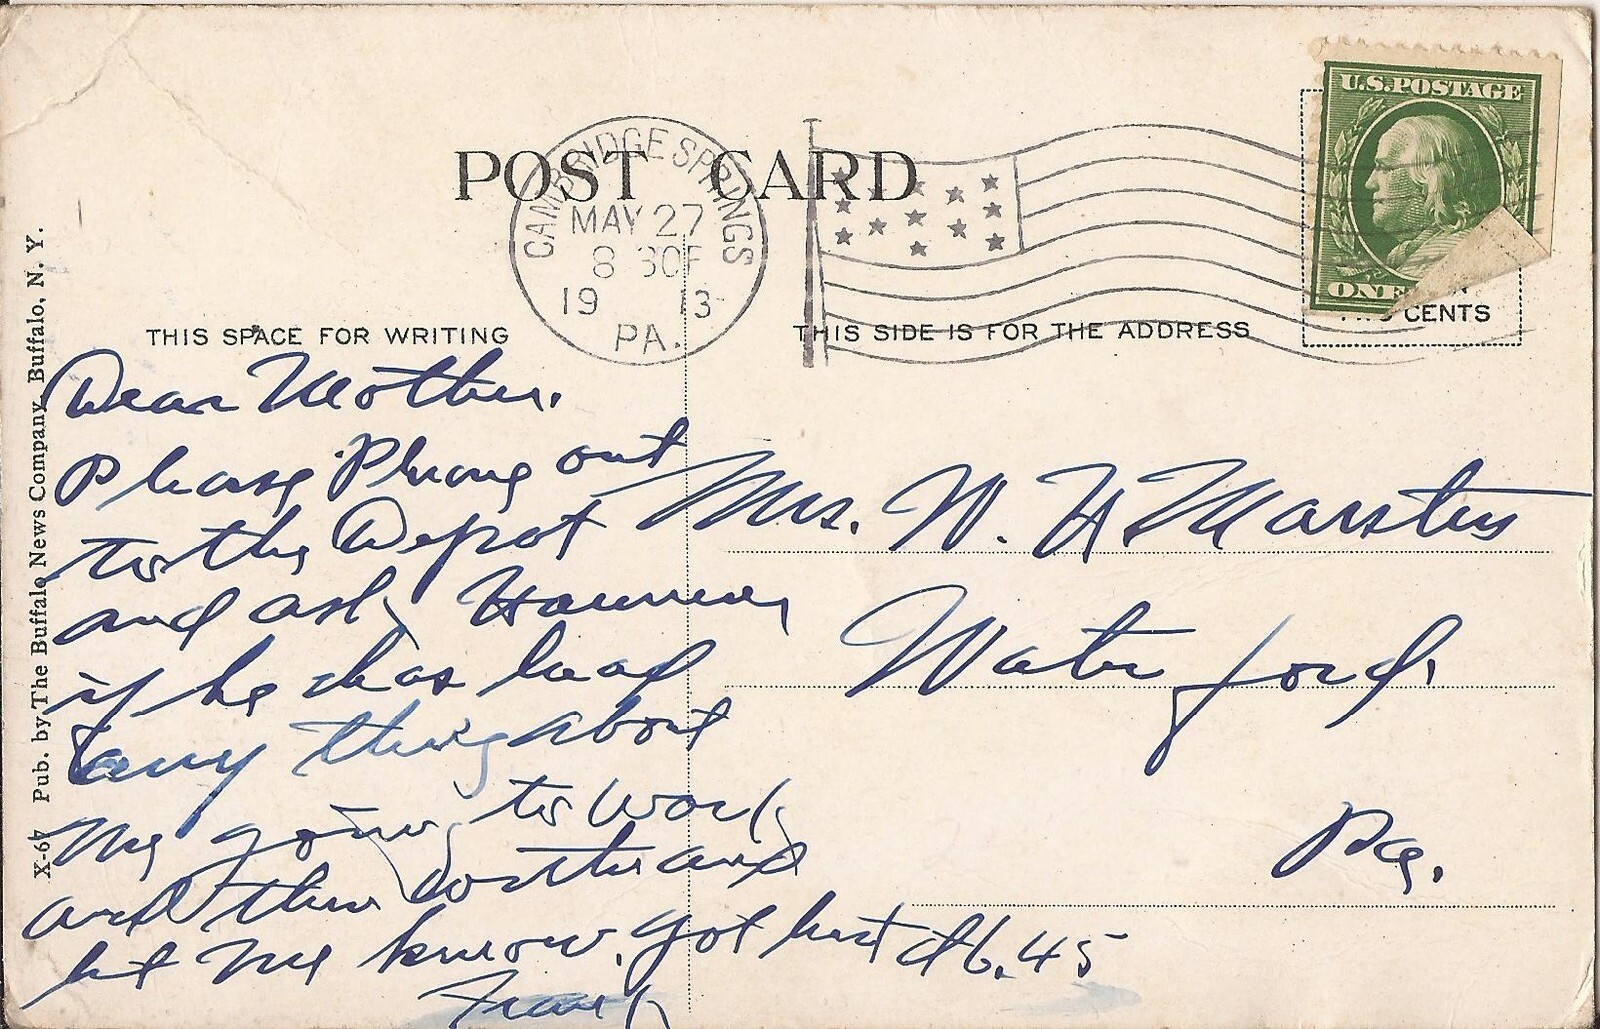 POST CARD
CAMBRIDGE SPRINGS
MAY 27
8 30P
19 13
PA.
U.S.POSTAGE
ONE
CENTS
THIS SPACE FOR WRITING
THIS SIDE IS FOR THE ADDRESS
X-67 Pub. by The Buffalo News Company, Buffalo, N. Y.
Dear Mother.
Please Phone out
to the Depot
and ask
if he has head
any thing about
me going to work
and then write and
let me know. got here at 6.45
Frank
Mrs. W. H Marsteys
Waterford,
Pa.